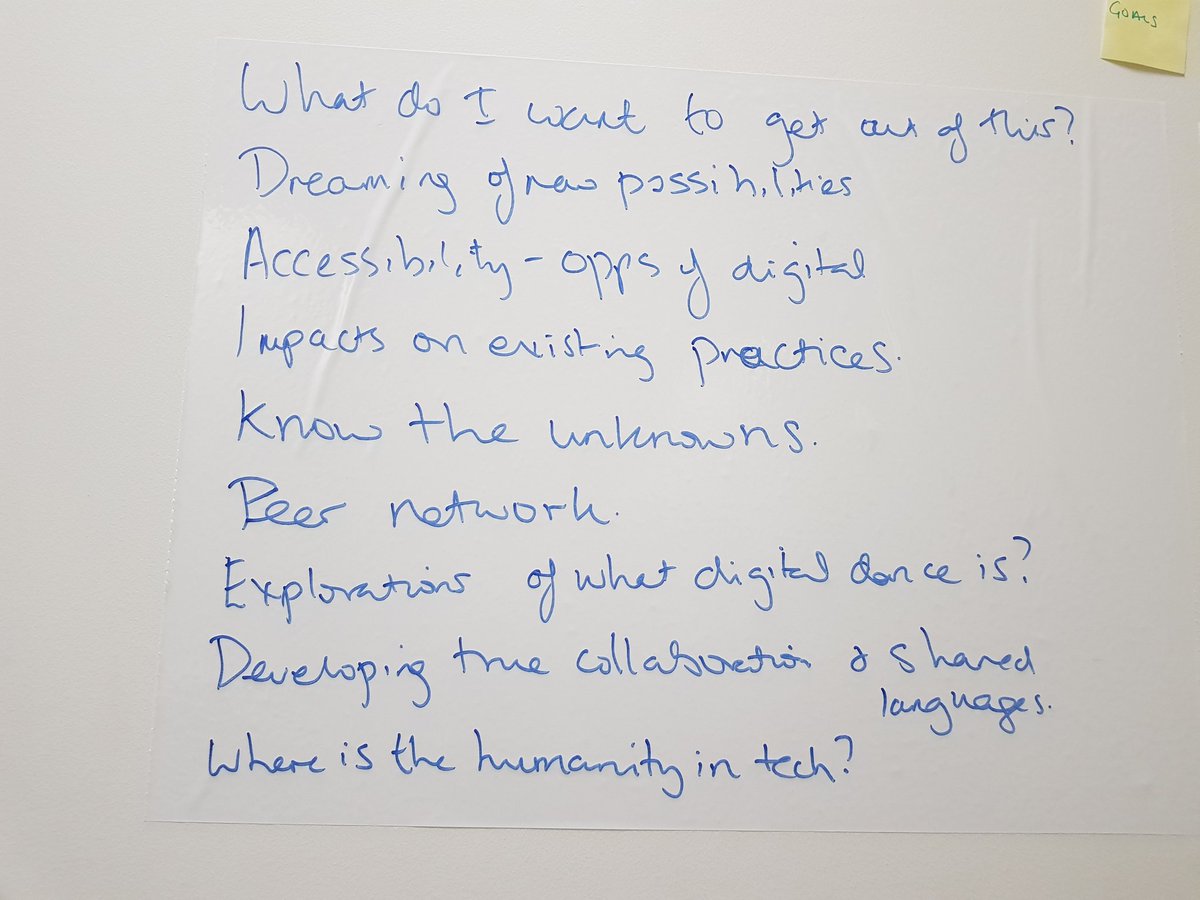 GOALS
What do I want to get out of this?
Dreaming of new possibilities
Accessibility - opps of digital
Impacts on existing practices.
Know the unknowns.
Peer network.
Explorations of what digital dance is?
Developing true collaboration & shared
languages.
Where is the humanity in tech?